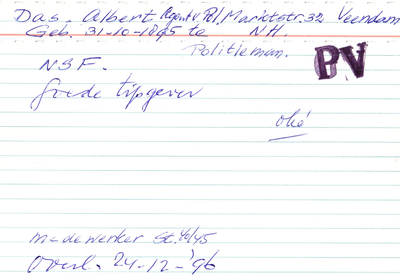 Das. Albert Agent v Pol. Marktstr. 32 Veendam
Geb. 31-10-1895 te N.H.
Politieman.
PV
N S F.
Goede tipgever
oké
medewerker St. 40/45
overl. 24-12-'96